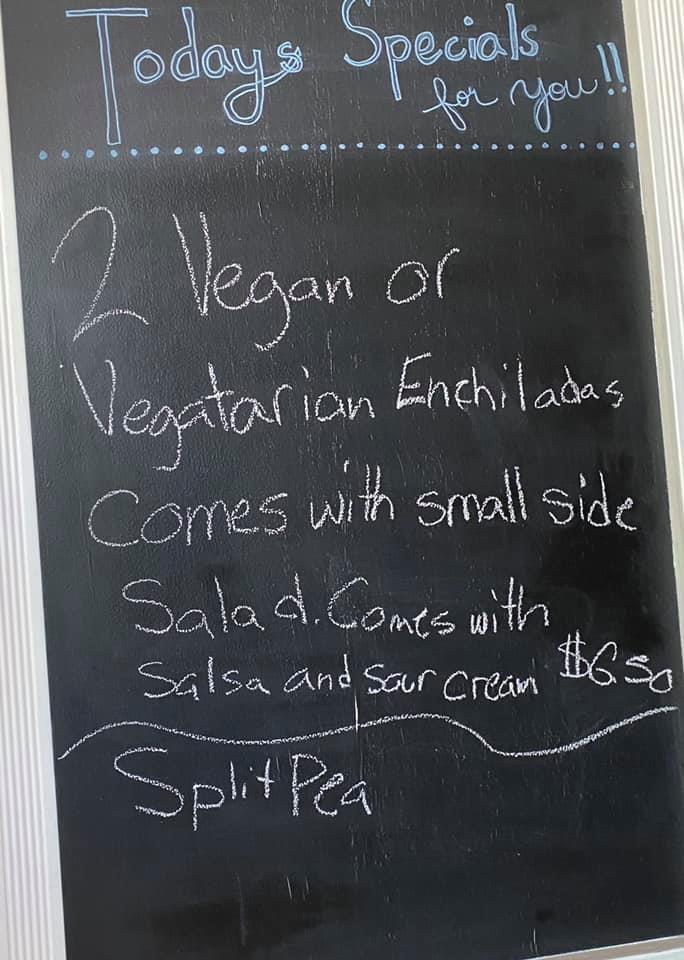 Todays Specials
for you!!
2 Vegan or
Vegatarian Enchiladas
Comes with small side
Salad. Comes with
Salsa and Sour Cream $6.50
Split Pea